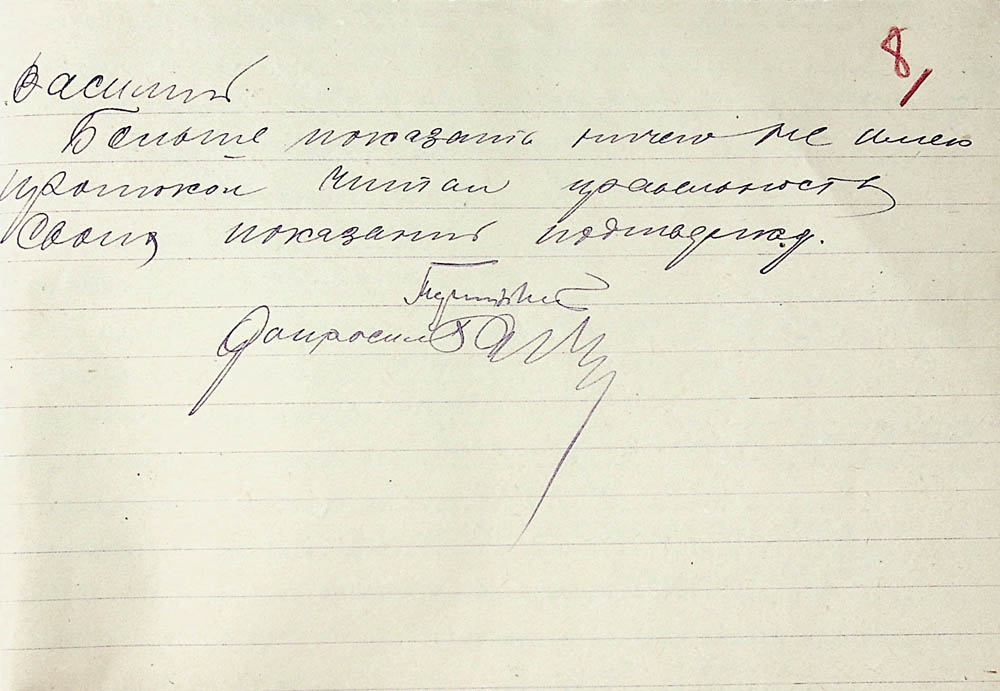 8
Василий
Больше показать ничего не имею
протокол читал правельность
своих показаний подтверждаю.
Допросил